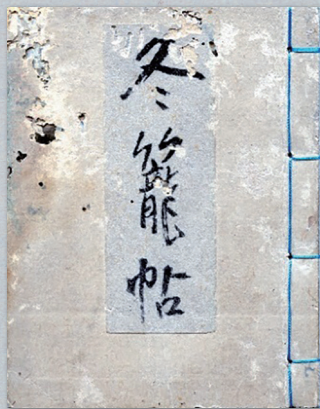 冬籠帖